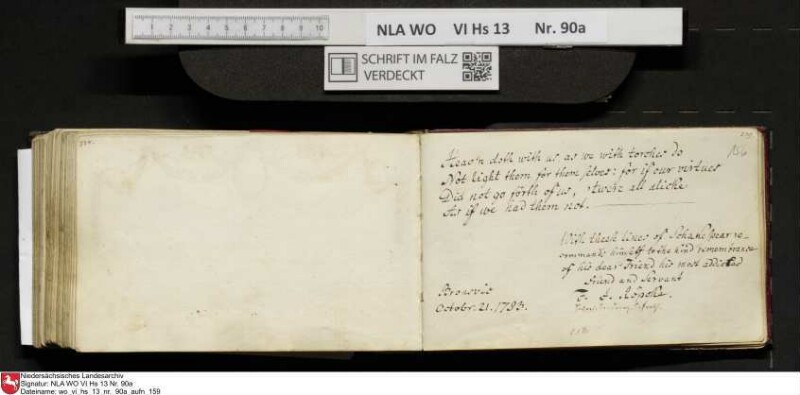 NLA WO VI Hs 13 Nr. 90a
SCHRIFT IM FALZ
VERDECKT
156
Heav'n doth with us as we with torches do
Not light them for them selves: for if our virtues
Did not go forth of us, 'twere all alicke
As if we had them not.
With these lines of Schakespear re-
commends himself to the kind remembrance
of his dear Friend his most addicted
Friend and Servant
Bronsvic
Octobr. 21. 1793.
Niedersächsisches Landesarchiv
Signatur: NLA WO VI Hs 13 Nr. 90a
Dateiname: wo_vi_hs_13_nr._90a_aufn_159